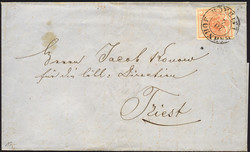 Herrn Jacob Konow
für die löbl. Direction
Triest